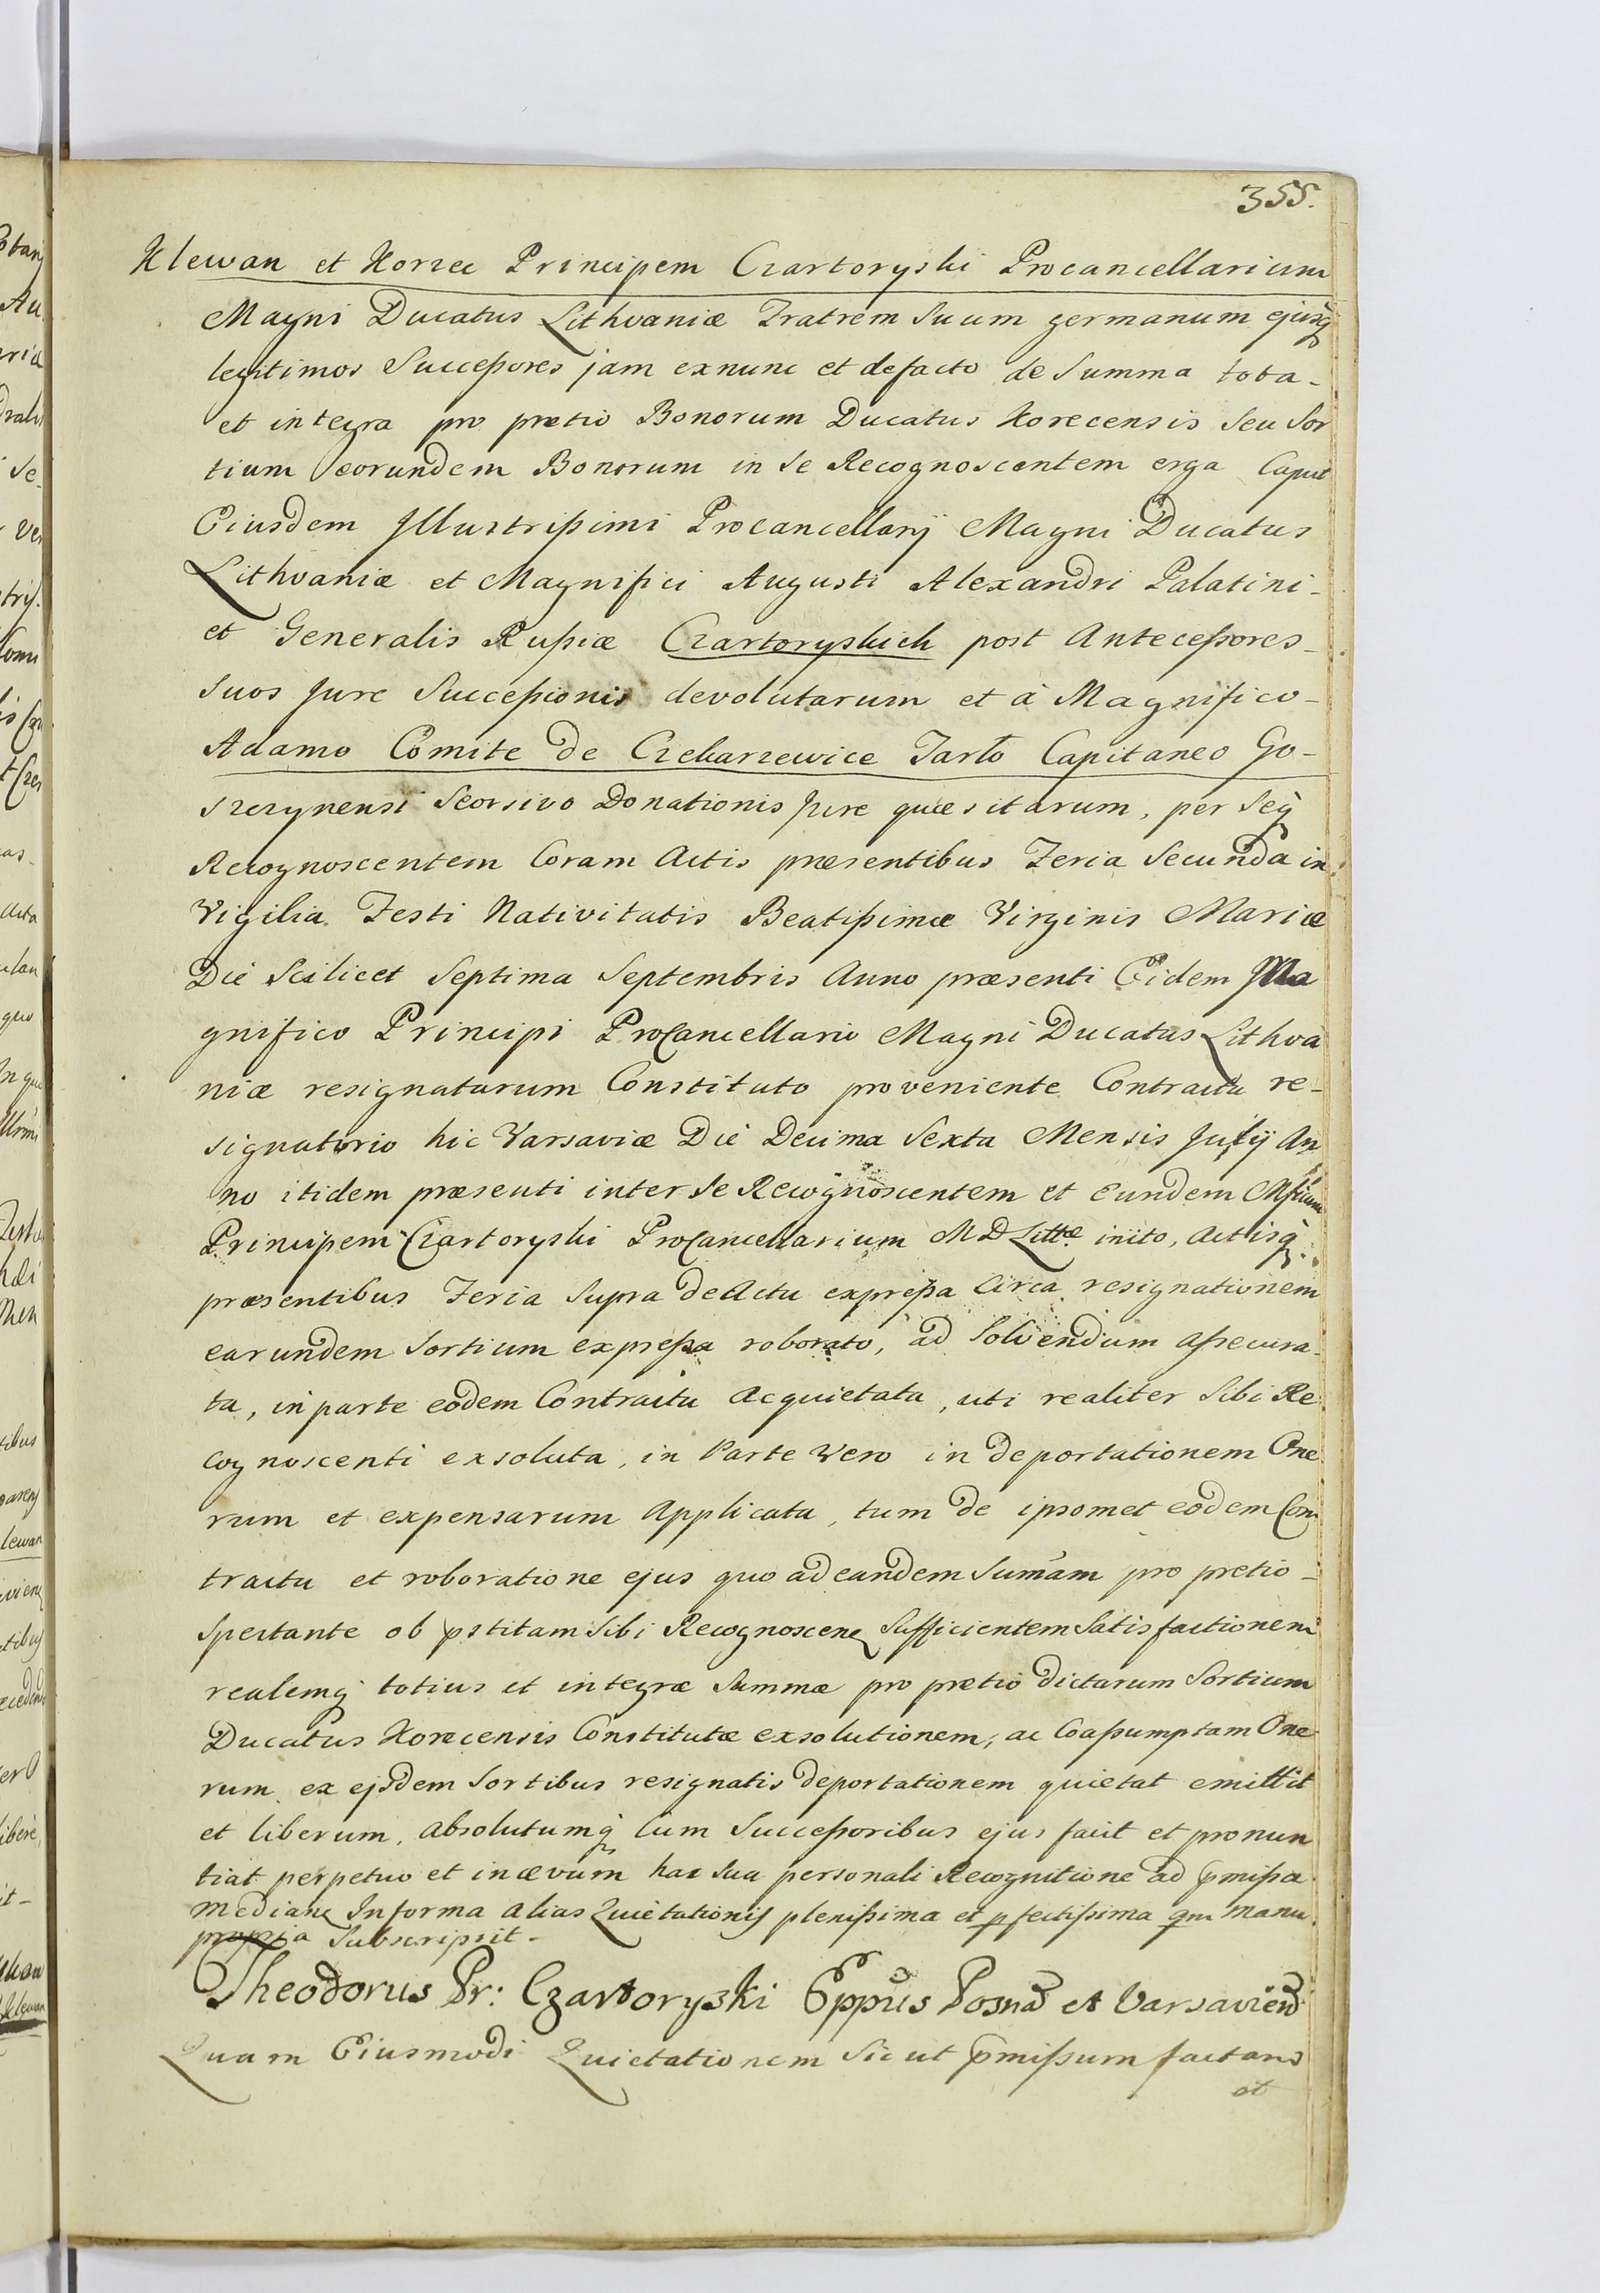 355.
Klewan et Korzec Principem Czartoryski Procancellarium
Magni Ducatus Lithvaniæ Fratrem Suum germanum ejusq
legitimos Successores jam exnunc et defacto de Summa tota-
et integra pro pretio Bonorum Ducatus Korecensis Seu Sor
tium eorundem Bonorum in Se Recognoscentem erga Caput
Eiusdem Illustrissimi Procancellarij Magni Ducatus
Lithvaniæ et Magnifici Augusti Alexandri Palatini-
et Generalis Russiæ Czartoryskich post Antecessores-
Suos Jure Successionis devolutarum et à Magnifico-
Adamo Comite de Czekarzewice Tarło Capitaneo Go-
szczynensi Seorsivo Donationis Jure quæsitarum, per Seq
Recognoscentem Coram Actis præsentibus Feria Secunda in
Vigilia Festi Nativitatis Beatissimæ Virginis Mariæ
Die Scilicet Septima Septembris Anno præsenti Eidem Ma
gnifico Principi ProCancellario Magni Ducatus Lithva
niæ resignatarum Constituto proveniente Contractu re-
signatorio hic Varsaviæ Die Decima Sexta Mensis Julij An
no itidem præsenti inter Se Recognoscentem et Eundem
Principem Czartoryski ProCancellarium M D Littæ inito, Actisq
præsentibus Feria Supra de Actu expressa circa resignationem
earundem Sortium expressa roborato, ad Solvendum assecura-
ta, in parte eodem Contractu Acquietata, uti realiter Sibi Re
cognoscenti exsoluta, in Parte Vero in deportationem One
rum et expensarum Applicata, tum de ipsomet eodem Con
tractu et roboratione ejus quo ad eandem Sumam pro pretio-
Spectante ob pstitam Sibi Recognoscen Sufficientem Satisfactionem
realemq totius et integræ Summæ pro pretio dictarum Sortium
Ducatus Korecensis Constitutæ exsolutionem, ac Coassumptam One
rum ex ejsdem Sortibus resignatis deportationem quietat emittit
et liberum, Absolutumq Cum Successoribus ejus facit et pronun
tiat perpetuo et in ævum hac Sua personali Recognitione ad pmissa
Median In forma alias Quietationis plenissima et pfectissima qm manu
propria Subscripsit-
Theodorus Pr: Czartoryski Eppus Posnā et Varsavien
Quam Eiusmodi Quietationem Sicut pmissum factam
et